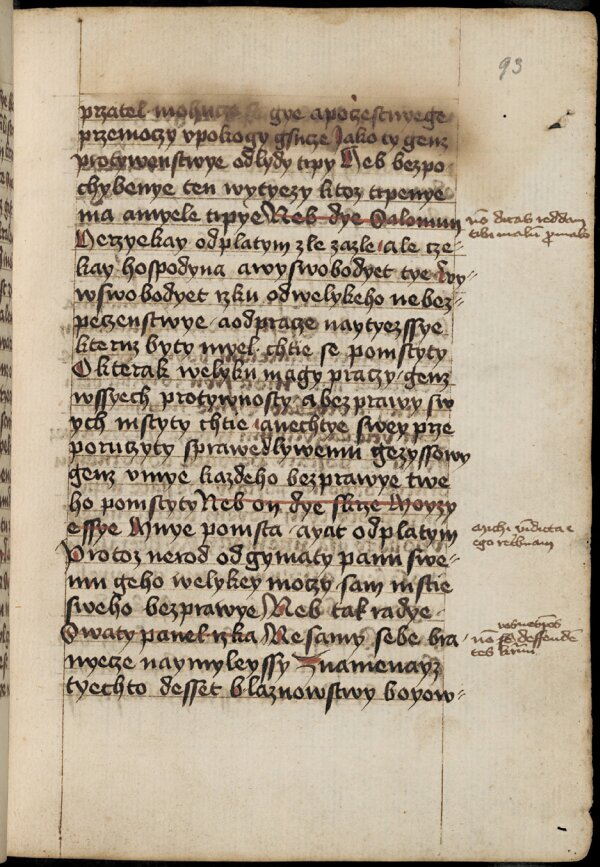 93
przatel mohucze se gye apoczestnyege
przemoczy vpokogy gsucze Jako ty genz
protywenstwye odlydy trpy Neb bezpo
chybenye ten wytyezy ktoz trpenye
ma anyele trpye Neb dye Salomun
Nerzyekay odplatym zle zazle ale cze-
kay hospodyna awyswobodyet tye Wy-
wswobodyet rzku odwelykeho nebez-
peczenstwye aodpracze naytyezssye
kteruz byty myel chtie se pomstyty
O kterak welyku magy praczy genz
wssyech protywnosty abezprawy sw
ych mstyty chtie anechtye swey prze
poruczyty sprawedlywemu gezyssowy
genz vmye kazdeho bezprawye twe
ho pomstyty Neb on dye skrze Moyzy
essye Mnye pomsta ayat odplatym
Protoz nerod odgymaty panu swe-
mu geho welykey moczy sam mstie
sweho bezprawye Neb tak radye
Swaty panel rzka Nesamy sebe bra
nyecze naymyleyssy Znamenayz
tyechto desset blaznowstwy boyow-
nō dicas reddam
tibi malū pro malo
michi vindicta e
ego
nō
deffendē
tes